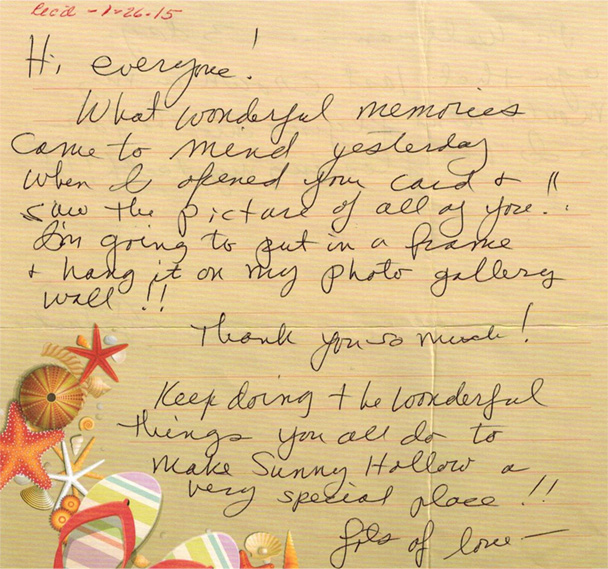 Rec'd - 1-26-15
Hi, everyone!
What wonderful memories
came to mind yesterday
when I opened your card &
saw the picture of all of you!!
I'm going to put in a frame
& hang it on my photo gallery
wall!!
Thank you so much!
Keep doing the wonderful
things you all do to
make Sunny Hollow a
very special place!!
Lots of love—